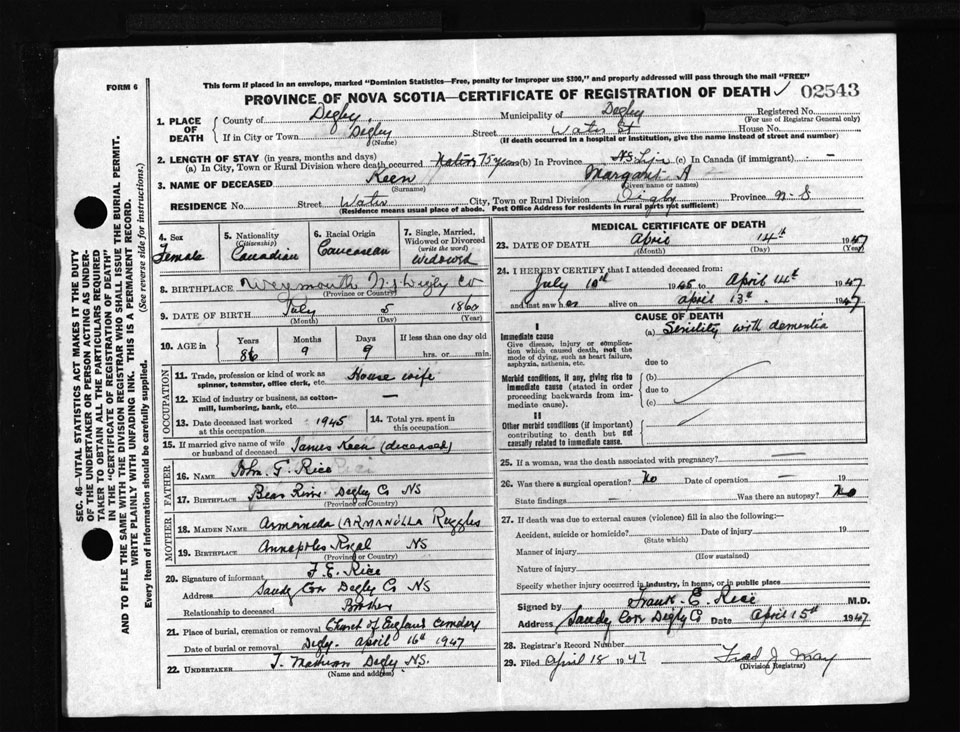 FORM 6
This form if placed in an envelope, marked "Dominion Statistics—Free, penalty for improper use $300," and properly addressed will pass through the mail "FREE"
PROVINCE OF NOVA SCOTIA—CERTIFICATE OF REGISTRATION OF DEATH 02543
1. PLACE OF DEATH
County of Digby. Municipality of Digby Registered No.
(For use of Registrar General only)
If in City or Town Digby Street Water St House No.
(Name) (If death occurred in a hospital or institution, give the name instead of street and number)
2. LENGTH OF STAY (in years, months and days)
(a) In City, Town or Rural Division where death occurred Native 75 years (b) In Province NS Life (c) In Canada (if immigrant) —
3. NAME OF DECEASED Keen Margaret A
(Surname) (Given name or names)
RESIDENCE No. Street Water City, Town or Rural Division Digby Province N-S
(Residence means usual place of abode. Post Office Address for residents in rural parts not sufficient)
4. Sex Female
5. Nationality (Citizenship) Canadian
6. Racial Origin Caucasian
7. Single, Married, Widowed or Divorced (write the word) Widowed
8. BIRTHPLACE Weymouth N.S. Digby Co
(Province or Country)
9. DATE OF BIRTH July 5 1860
(Month) (Day) (Year)
10. AGE in Years 86 Months 9 Days 9 If less than one day old
hrs. or min.
OCCUPATION
11. Trade, profession or kind of work as spinner, teamster, office clerk, etc. House wife
12. Kind of industry or business, as cotton-mill, lumbering, bank, etc. —
13. Date deceased last worked at this occupation 1945
14. Total yrs. spent in this occupation
15. If married give name of wife or husband of deceased James Keen (deceased)
FATHER
16. NAME John T. Rice
17. BIRTHPLACE Bear River Digby Co NS
(Province or Country)
MOTHER
18. MAIDEN NAME (ARMANILLA Ruggles
19. BIRTHPLACE Annapolis Royal NS
(Province or Country)
20. Signature of informant F. E. Rice
Address Sandy Cove Digby Co NS
Relationship to deceased Brother
21. Place of burial, cremation or removal Church of England Cemetery
Date of burial or removal Digby. April 16th 1947
22. UNDERTAKER Digby NS.
(Name and address)
MEDICAL CERTIFICATE OF DEATH
23. DATE OF DEATH April 14th 1947
(Month) (Day) (Year)
24. I HEREBY CERTIFY that I attended deceased from:
July 10th 1945 to April 14th 1947
and last saw her alive on April 13th. 1947
CAUSE OF DEATH
I
Immediate cause
Give disease, injury or complication which caused death, not the mode of dying, such as heart failure, asphyxia, asthenia, etc.
(a) Senility with dementia
due to
Morbid conditions, if any, giving rise to immediate cause (stated in order proceeding backwards from immediate cause).
(b)
due to
(c)
II
Other morbid conditions (if important) contributing to death but not causally related to immediate cause.
25. If a woman, was the death associated with pregnancy? —
26. Was there a surgical operation? No Date of operation — 19
State findings — Was there an autopsy? No
27. If death was due to external causes (violence) fill in also the following:—
Accident, suicide or homicide? Date of injury 19
(State which)
Manner of injury
(How sustained)
Nature of injury
Specify whether injury occurred in industry, in home, or in public place
Signed by Frank E. Rice M.D.
Address Sandy Cove Digby Co Date April 15th 1947
28. Registrar's Record Number
29. Filed April 18 1947 Fred J. May
(Division Registrar)
SEC. 46—VITAL STATISTICS ACT MAKES IT THE DUTY
OF THE UNDERTAKER OR PERSON ACTING AS UNDER-
TAKER TO OBTAIN ALL THE PARTICULARS REQUIRED
IN THE "CERTIFICATE OF REGISTRATION OF DEATH"
AND TO FILE THE SAME WITH THE DIVISION REGISTRAR WHO SHALL ISSUE THE BURIAL PERMIT.
WRITE PLAINLY WITH UNFADING INK. THIS IS A PERMANENT RECORD.
Every item of information should be carefully supplied. (See reverse side for instructions.)